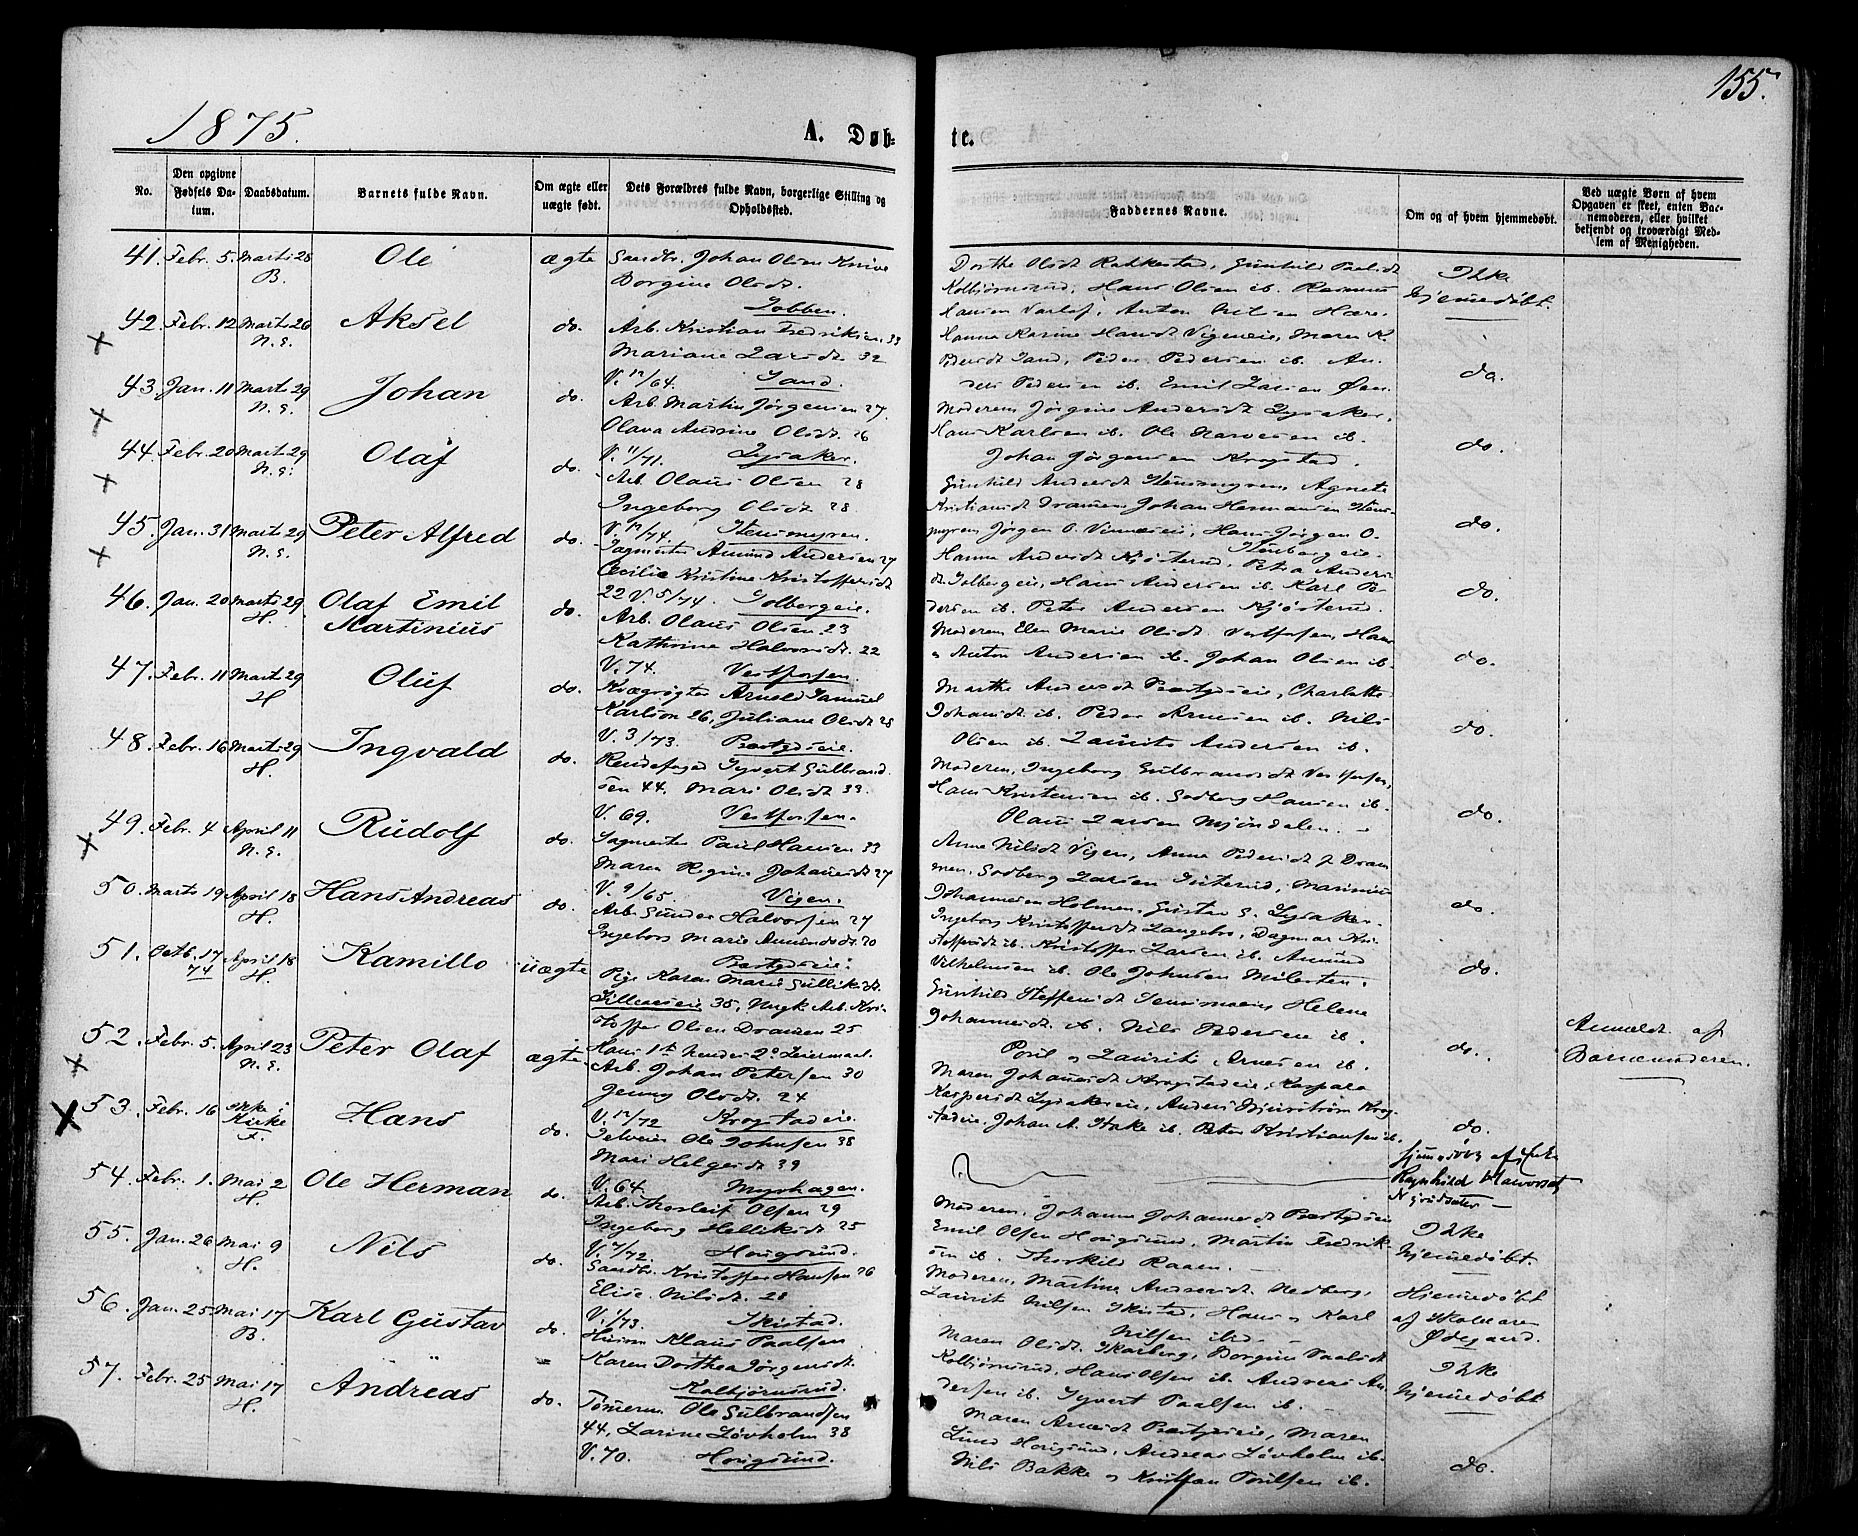 155.
1875.
A. Døb-
te.
No.
Den opgivne Fødsels Da-
tum.
Daabsdatum.
Barnets fulde Navn.
Om ægte eller
uægte født.
Dets Forældres fulde Navn, borgerlige Stilling og
Opholdssted.
Faddernes Navne.
Om og af hvem hjemmedøbt.
Ved uægte Børn af hvem
Opgaven er skeet, enten Bar-
nemoderen, eller hvilket
bekjendt og troværdigt Med-
lem af Menigheden.
41. Febr. 5. Marts 28 B. Ole ægte
Johan Olsen
Borgine Olsdt.
Dorthe Olsdt Rakkestad, Gunhild Paalsdt
Kolbjørnsrud, Hans Olsen ib. Rasmus
Ikke
hjemmedøbt.
42. Febr. 12 Marts 26 N.E. Aksel do.
Arb. Kristian Fredriksen 33
Mariane Larsdt 32
V. 12/64. Sand.
Hanna Karine Hansdt Vigeneie, Maren K.
Pedersdt Sand, Peder Pedersen ib. An-
ders Pedersen ib. Emil Larsen
do.
43. Jan. 11 Marts 29 N.E. Johan do.
Arb. Martin Jørgensen 27.
Olava Andrine Olsdt. 26
V. 11/71. Lysaker.
Moderen Jørgine Andersdt Lysaker,
Hans Karlsen ib. Ole Narvesen ib.
Johan Jørgensen Krogstad.
do.
44. Febr. 20 Marts 29 N.E. Olaf do.
Arb. Olaus Olsen 28
Ingeborg Olsdt 28.
V. 12/74. Stensmyren.
Gunhild Andersdt Stensmyren, Agnete
Kristiansdt Dramen, Johan Hermansen Stens-
myren, Jørgen O. Hans Jørgen O.
do.
45. Jan. 31 Marts 29 N.E. Peter Alfred do.
Sagmester Amund Andersen 27
Cecilie Kristine Kristoffersdt
22 V 5/74. Solbergeie.
Hanna Andersdt Kjøsterud, Petra Anders-
dt. Solbergeie, Hans Andersen ib. Karl Pe-
dersen ib. Peter Andersen Kjøsterud.
do.
46. Jan. 20 Marts 29 H. Olaf Emil
Martinius do.
Arb. Olaus Olsen 23
Kathrine Halvorsdt. 22
V. 74. Vestfossen.
Moderen Elen Marie Olsdt. Vestfossen, Hans
o Anton Andersen ib. Johan Olsen ib.
do.
47. Febr. 11 Marts 29 H Oluf do.
Kvægrøgter Arnold Samuel
Karlson 26, Juliane Olsdt 28
V. 3/73. Præstgdseie.
Marthe Andersdt Præstgdseie, Charlotte
Johansdt ib. Peder Arnesen ib. Nils
Olsen ib. Laurits Andersen ib.
do.
48. Febr. 16 Marts 29 H. Ingvald do.
Syvert Gulbrand-
sen 44. Mari Olsdt 33.
V. 69. Vestfossen.
Moderen, Ingeborg Gulbransdt Vestfossen,
Hans Kristensen ib. Hansen ib.
Olaus Larsen Mjøndalen.
do.
49. Febr. 4 April 11 N.E. Rudolf do.
Sagmester Paul Hansen 33
Maren Regine Johannesdt 27
V. 9/65. Vigen.
Anne Nilsdt Vigen, Anne Pedersdt Dram-
men, Larsen Marinius
Johannesen Holmen, Gustav G. Lysaker
do.
50. Marts 19 April 18 H. Hans Andreas do.
Arb. Gunder Halvorsen 27
Ingeborg Marie Amundsdt. 20
Præstgdseie.
Ingeborg Kristoffersdt Langebro, Dagmar Kri-
stoffersdt ib. Kristoffer Larsen ib. Amund
Vilhelmsen ib. Ole Johnsen Milesten.
do.
51. Octb. 17 74 April 18 H. Kamillo uægte
Pige Karen Marie Gulliksdt.
35, Ungk. Arb. Kri-
stoffer Olsen Dramen 25
Hans 1ste hendes 2det Leiermaal.
Gunhild Steffensdt Helene
Johannesdt. ib. Nils Pedersen ib.
Poul o Laurits Arnesen ib.
do.
Anmeldt af
Barnemoderen.
52. Febr. 5. April 23 N.E. Peter Olaf ægte
Arb. Johan Petersen 30
Jenny Olsdt. 24
V. 12/72 Krogstadeie.
Maren Johannesdt Krogstadeie, Kaspara
Kaspersdt Lysakereie, Anders Bjurstrøm Krog-
stadeie. Johan A. Stake ib. Peter Kristiansen ib.
do.
53. Febr. 16 Ikke i
Kirke
F. Hans do.
Selveier Ole Johnsen 38
Mari Helgesdt 39
V. 64. Myrhagen.
Hjemmedøbt af
Ragnhild Halvorsdt
54. Febr. 1. Mai 2 H. Ole Herman do.
Arb. Thorleif Olsen 29
Ingeborg Helliksdt 25
V. 7/72. Hougsund.
Moderen, Johanne Johannesdt Præstgdseie
Emil Olsen Hougsund, Martin Fredrik-
sen ib. Thorkild Raaen.
Ikke
hjemmedøbt.
55. Jan. 26 Mai 9 H. Nils do.
Sandbr. Kristoffer Hansen 26
Elise Nilsdt. 28
V. 1/73. Skistad.
Moderen, Martine Andersdt. Nedberg,
Laurits Nilsen Skistad, Hans o Karl
Nilsen ibid.
Hjemmedøbt
af Skolelærer
Ødegaard.
56. Jan. 25 Mai 17 B. Karl Gustav do.
Husm Klaus Paalsen
Karen Dorthea Jørgensdt.
Kolbjørnsrud.
Maren Olsdt. Skarberg, Borgine Paalsdt
Kolbjørnsrud, Hans Olsen ib. Andreas An-
dersen ib. Syvert Paalsen ib.
Ikke
hjemmedøbt
57. Febr. 25 Mai 17 H. Andreas do.
Tømrerm. Ole Gulbrandsen
44, Larine Løvholm 38
V. 70. Hougsund.
Maren Arnesdt Præstgdseie, Maren
Lund Hougsund, Andreas Løvholm ib.
Nils Bakke o Kristian Poulsen ib.
do.